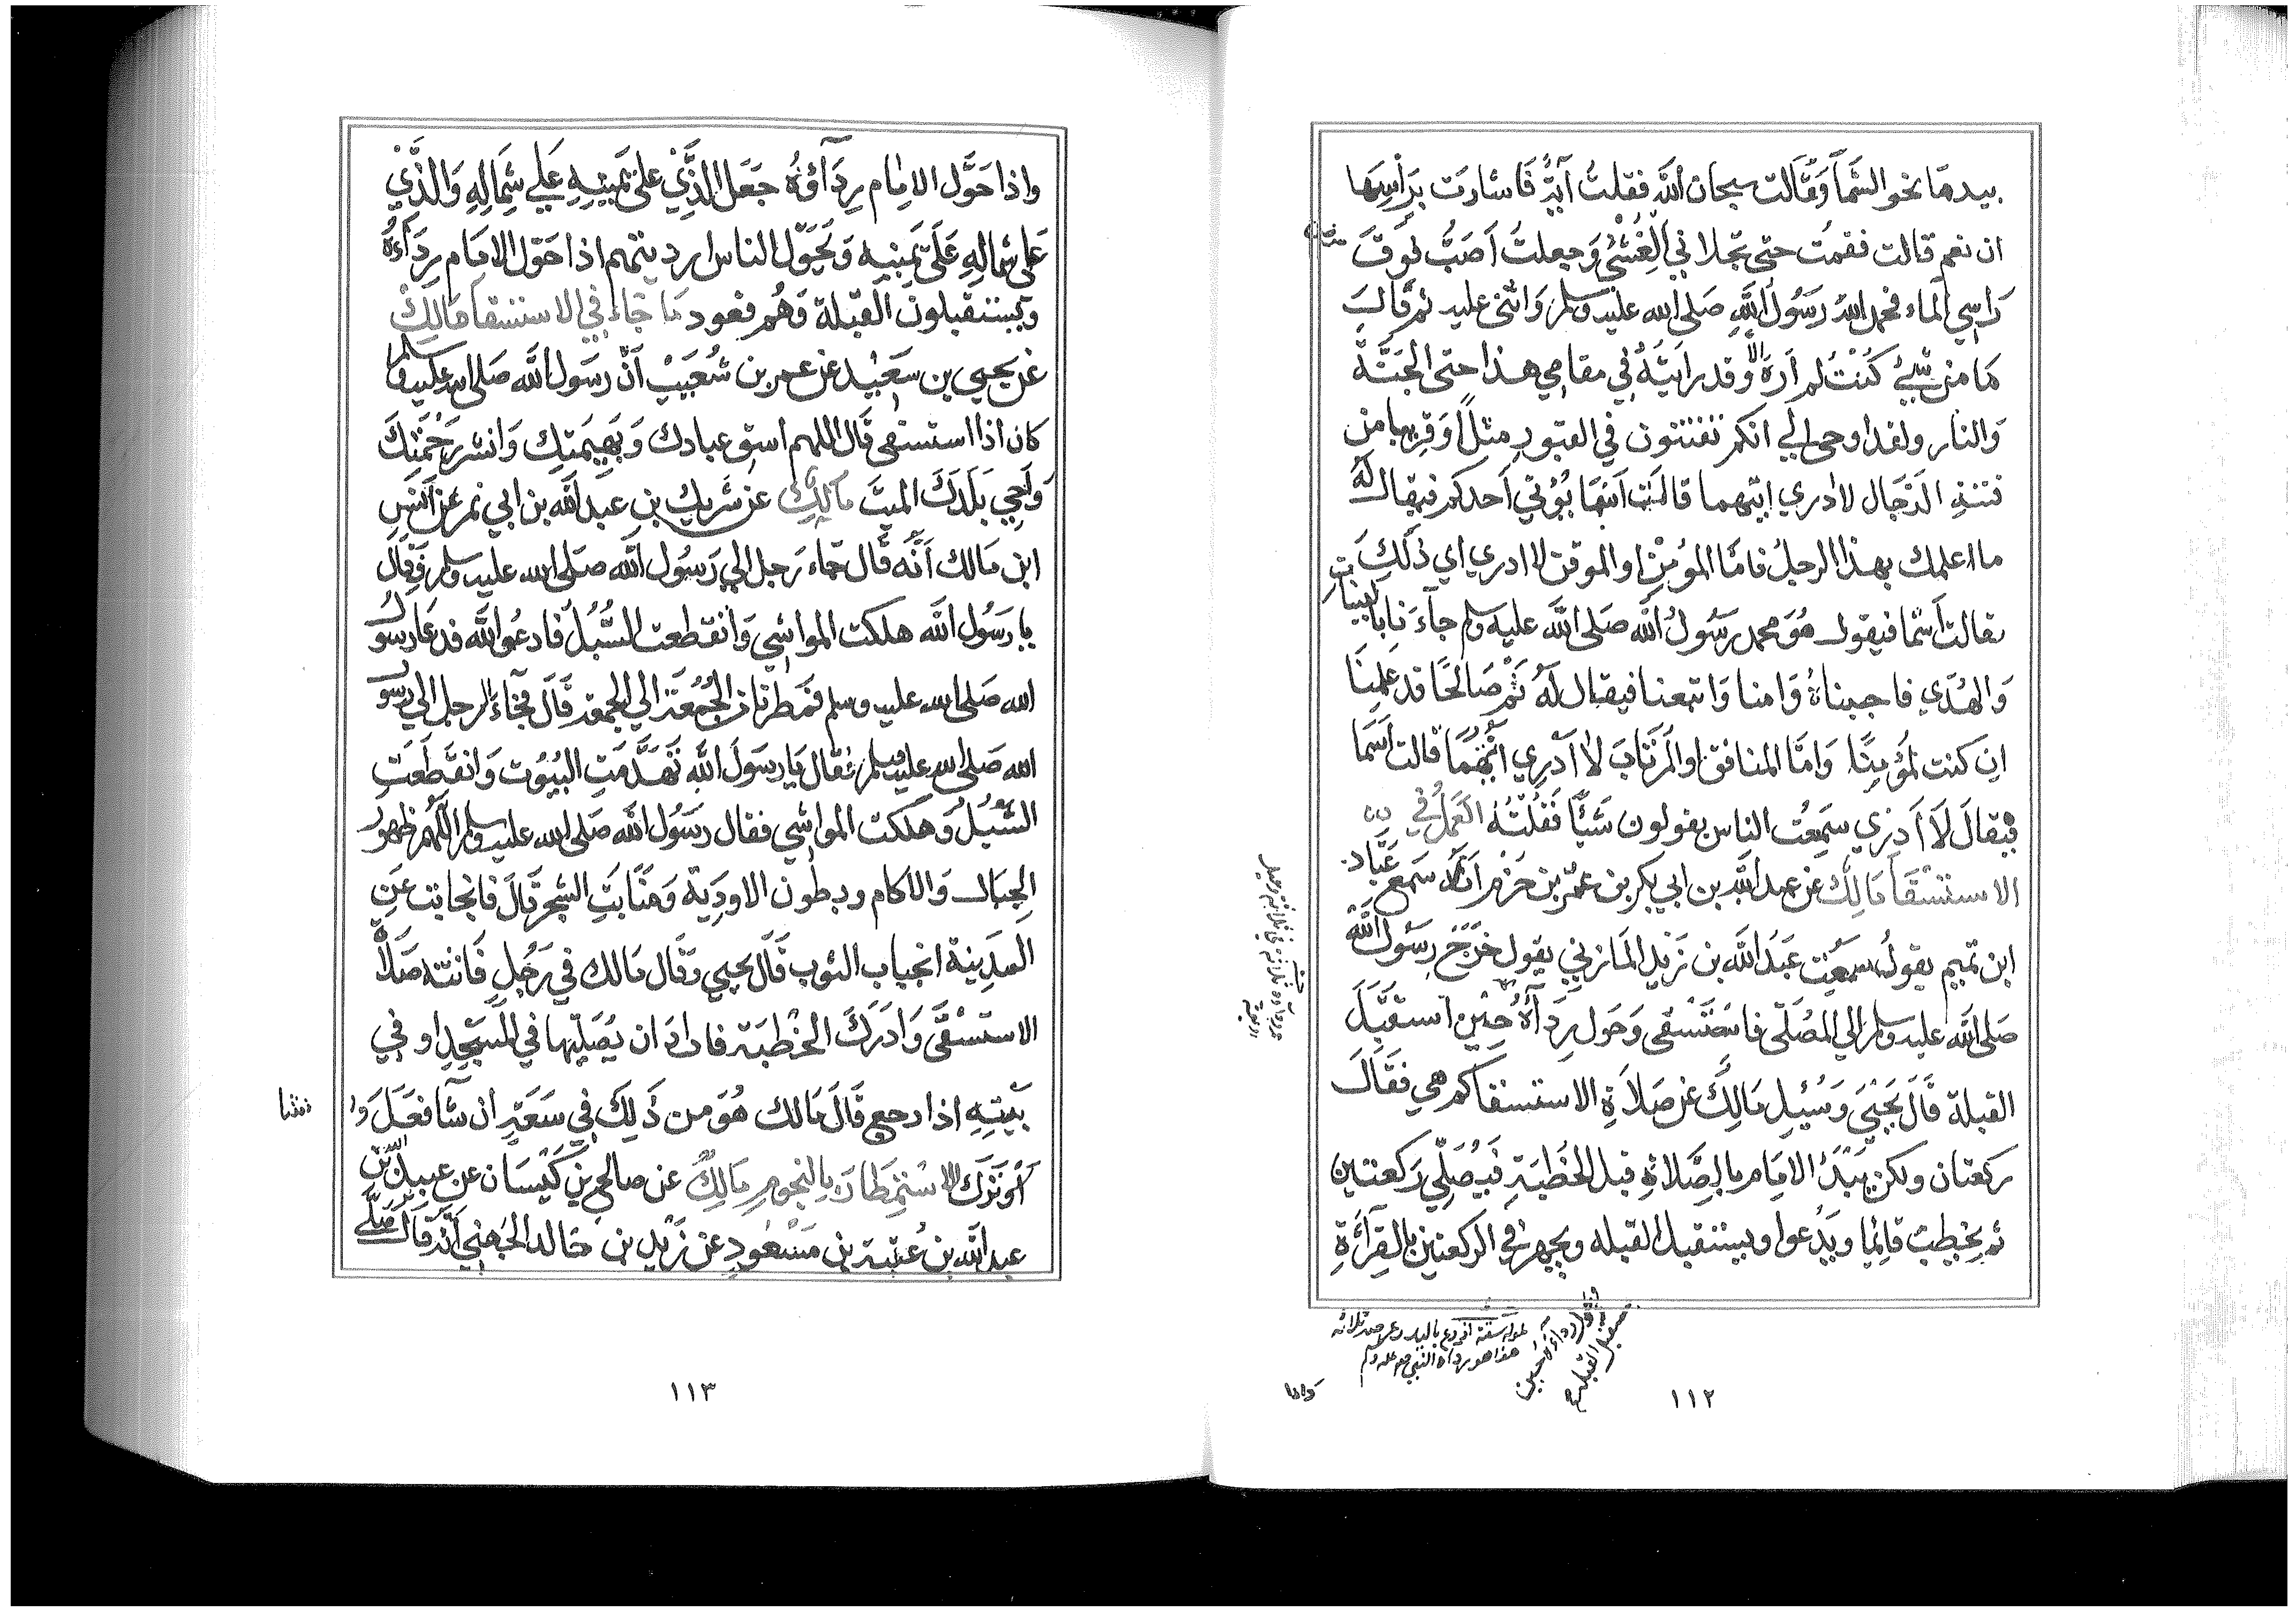 بيدها نحو السَّمآ وَقَالت سبحان الله فقلتُ آيةٌ فَاشارَت بِرَأسِهَا
ان نعم قالت فقمتُ حتى تجلاني الغَشْيُ وَجعلتُ اَصَبُّ فوقَ
رَاسِي الماء فحمد اللهَ رَسُولُ اللهِ صَلى الله عليه وسلم وَاثنى عليه ثم قَالَ
مَا من شيْءٍ كُنْتُ لم اَرَهُ الا وَقد رايتُهُ في مقامي هذا حتى الجَنَّةَ
وَالنار ولقد اوحى الي انكم تفتنون في القبور مثلاً اوَ قريبا من
فتنة الدَّجال لا ادري ايتهما قالت اَسْمَا يُؤتي اَحدكم فيقال لَهُ
ما اعلمك بهذا الرجلُ فامّا المؤمِنُ او الموقن لا ادري اي ذلكَ
قالت اَسْما فيقول هوَ محمد رَسُولُ الله صَلى اللهَ عليه وسلم جاءَنا بالبينات
وَالهُدَي فاجبناهُ وَامنا وَاتبعنا فيقال لَهُ نَمْ صَالحًا قد عَلِمْنَا
ان كنت لمؤمِنًا وَامّا المنافق او المُرتَابَ لا اَدْرِي ايّتهُمَا قالت اَسمَا
فيقالَ لاَ اَدْرِي سَمِعْتُ الناسَ يقولون شَيْأً فَقُلْتُهُ العَمَلُ في
الاستسْقَآ مَالِك عَن عبد اللهَ بن ابي بكر بن عمْرِو بن حَزْمٍ اَنَّهُ سَمعَ عَبَّاد
ابن تميم يقولُ سمعْت عَبدَ اللهَ بن زَيْد المَازِنِي يقول خَرَجَ رسُولُ اللهِ
صَلى الله عليه وسلم الي المصَلّى فاستَسْقى وَحَول رِدَآءَهُ حِيْن استقبَلَ
القبلة قَالَ يحْيَى وَسُئِلَ مَالِكٌ عَن صَلاَةِ الاستسقا كم هي فقَالَ
ركعتان ولكن يَبْدَأ الامَام بالصَّلاةِ قبل الخُطبَةِ فَيُصَلِّي رَكعتين
ثم يخطبُ قائِما وَيَدْعوا ويستقبل القبله ويجهر في الركعتين بالقِرَآءَةِ
هذا هو رداء النبي
١١٢
واذا حَوَّل الامَام رِدَآؤهُ جَعَل الذِّي على يَمِينِهِ عَلي شِمَالِهِ وَالذِّي
على شمالِهِ عَلَى يَمينِه وَيُحَوِّل الناس ارديتهم اذا حَوَّل الامَام رِدَآءَهُ
وَيَستقبلون القبلة وَهُم قعود مَا جَاءَ في الاستسقا مَالِك
عن يحيي بن سَعِيْد عن عمرو بن شُعَيْبٍ اَنَّ رسَول اللهَ صَلى الله عليه وسلم
كان اذا استسقى قَال اللهم اسق عبادك وَبَهِيمَتك وَانشر رَحْمَتَكَ
وَاَحْيِي بَلَدَكَ الميتَ مَالِك عن شَرِيك بن عبد الله بن ابي نمر عن اَنَسِ
ابن مَالك اَنّهَ قَال جَاء رَجل الي رَسُول اللّهَ صَلى الله عليه وسلم وَقَال
يا رَسُول اللهَ هلكت المواشي وَانقطعت السُّبُلُ فادعُوا اللهَ فدعَا رسول
الله صَلى الله عليه وسلم فمطرنا من الجُمُعَة الي الجمعة قَالَ فجَاءَ الرجل الي رسول
الله صَلى الله عليه وسلم فقال يَا رسَولَ الله تَهَدَّمَت البُيُوت وَانقَطَعَتِ
السُّبُلُ وَهلكت المواشي فقال رسَول الله صَلى الله عليه وسلم اللّهم ظهور
الجبال وَالاكام وبطون الاودِيَة وَمَنَابَتِ الشجر قَالَ فانجابت عَنِ
المدِينة انجياب الثوب قَالَ يحيي وَقَال مَالك في رَجُلٍ فَاتته صَلاة
الاستسْقَى وَادرَكَ الخُطبَة فارادَ ان يُصَلِّيها في المسْجِدِ او في
بَيْتِهِ اذا رجع قَالَ مَالك هُوَ من ذَلِكَ في سَعَةٍ ان شآ فَعَلَ
اَوْ تَرَكَ الاستمْطَارُ بِالنجوم مَالِكٌ عن صالح بْن كَيْسَان عن عبيد الله بن
عبد الله بن عُتبة بن مسْعُودٍ عن زَيْد بن خَالد الجُهني اَنّه قَالَ صَلّى
١١٣